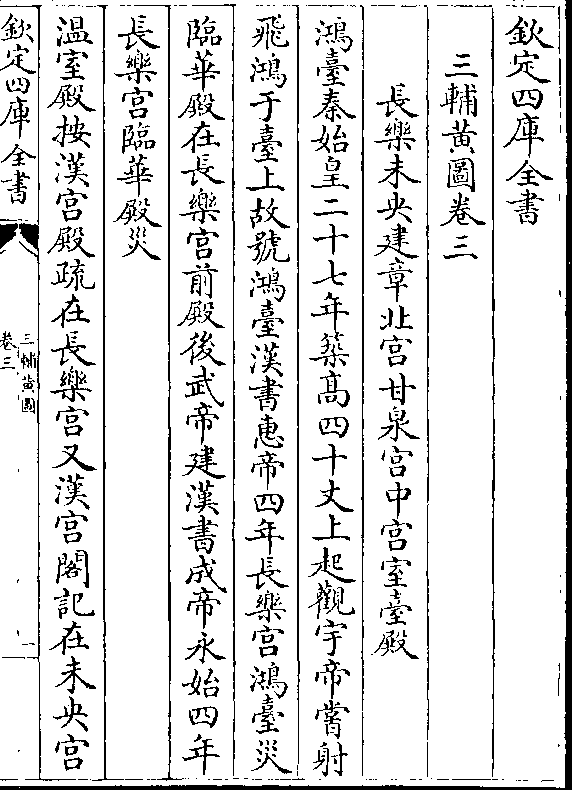 欽定四庫全書
三輔黄圖卷三
長樂未央建章北宫甘泉宫中宫室臺殿
鴻臺秦始皇二十七年築髙四十丈上起觀宇帝嘗射
飛鴻于臺上故號鴻臺漢書惠帝四年長樂宫鴻臺災
臨華殿在長樂宫前殿後武帝建漢書成帝永始四年
長樂宫臨華殿災
温室殿按漢宫殿疏在長樂宫又漢宫閣記在未央宫
欽定四庫全書
三輔黄圖
卷三
一